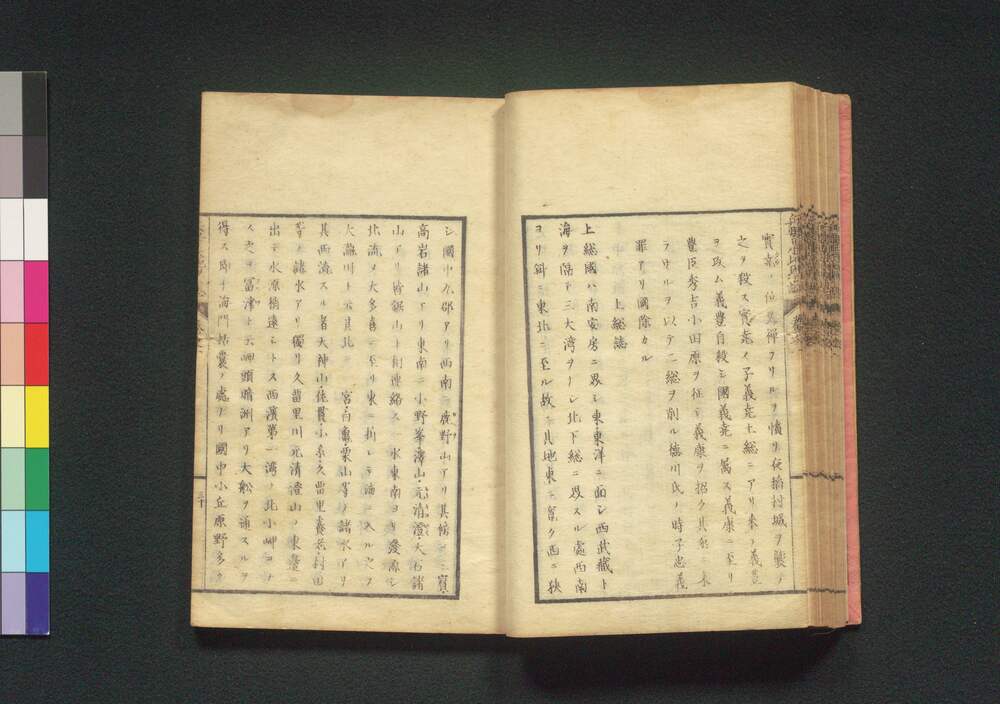 之ヲ殺ス實堯ノ子義堯上総ニアリ来リ義豊
ヲ攻ム義豊自殺シ國義堯ニ属ス義康ニ至リ
豊臣秀吉小田原ヲ征シ義康ヲ招ク其
ラサルヲ以テ二総ヲ削ル徳川氏ノ時子忠義
罪アリ國除カル
上総誌
上総國ハ南安房ニ界シ東東洋ニ面シ西武蔵ト
海ヲ隔テ三大湾ヲナシ北下総ニ界スル處西南
ヨリ斜ニ東北ニ至ル故ニ其地東ニ寛ク西ニ狭
シ國中九郡アリ西南ニ鹿野山アリ其傍
高岩諸山アリ東南ニ小野峯澤山元清澄大石諸
山アリ皆鋸山ト相連絡ス 水東南ヨリ發源シ
北流メ大多喜ニ至リ東ニ折レテ海ニ入ル之ヲ
大瀧川ト云其北ニ 宮白 栗山等ノ諸水アリ
其西流スル者天神山佐貫小糸久留里養老村田
等ノ諸水アリ獨リ久留里川元清澄山ノ東麓ニ
出テ水源稍遠シトス西濱第一湾ノ北小岬
之ヲ富津ト云岬頭暗洲アリ大船ヲ通スルヲ
得ス 海門 處ナリ國中小丘原野多ク